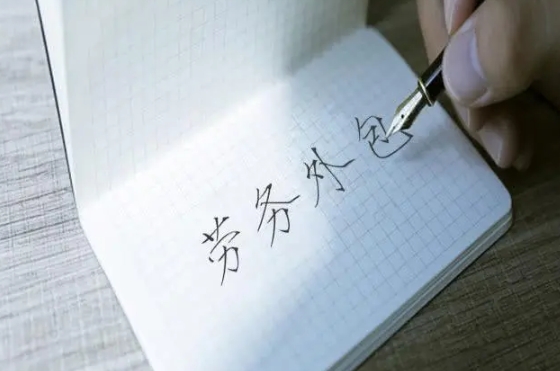 劳务外包